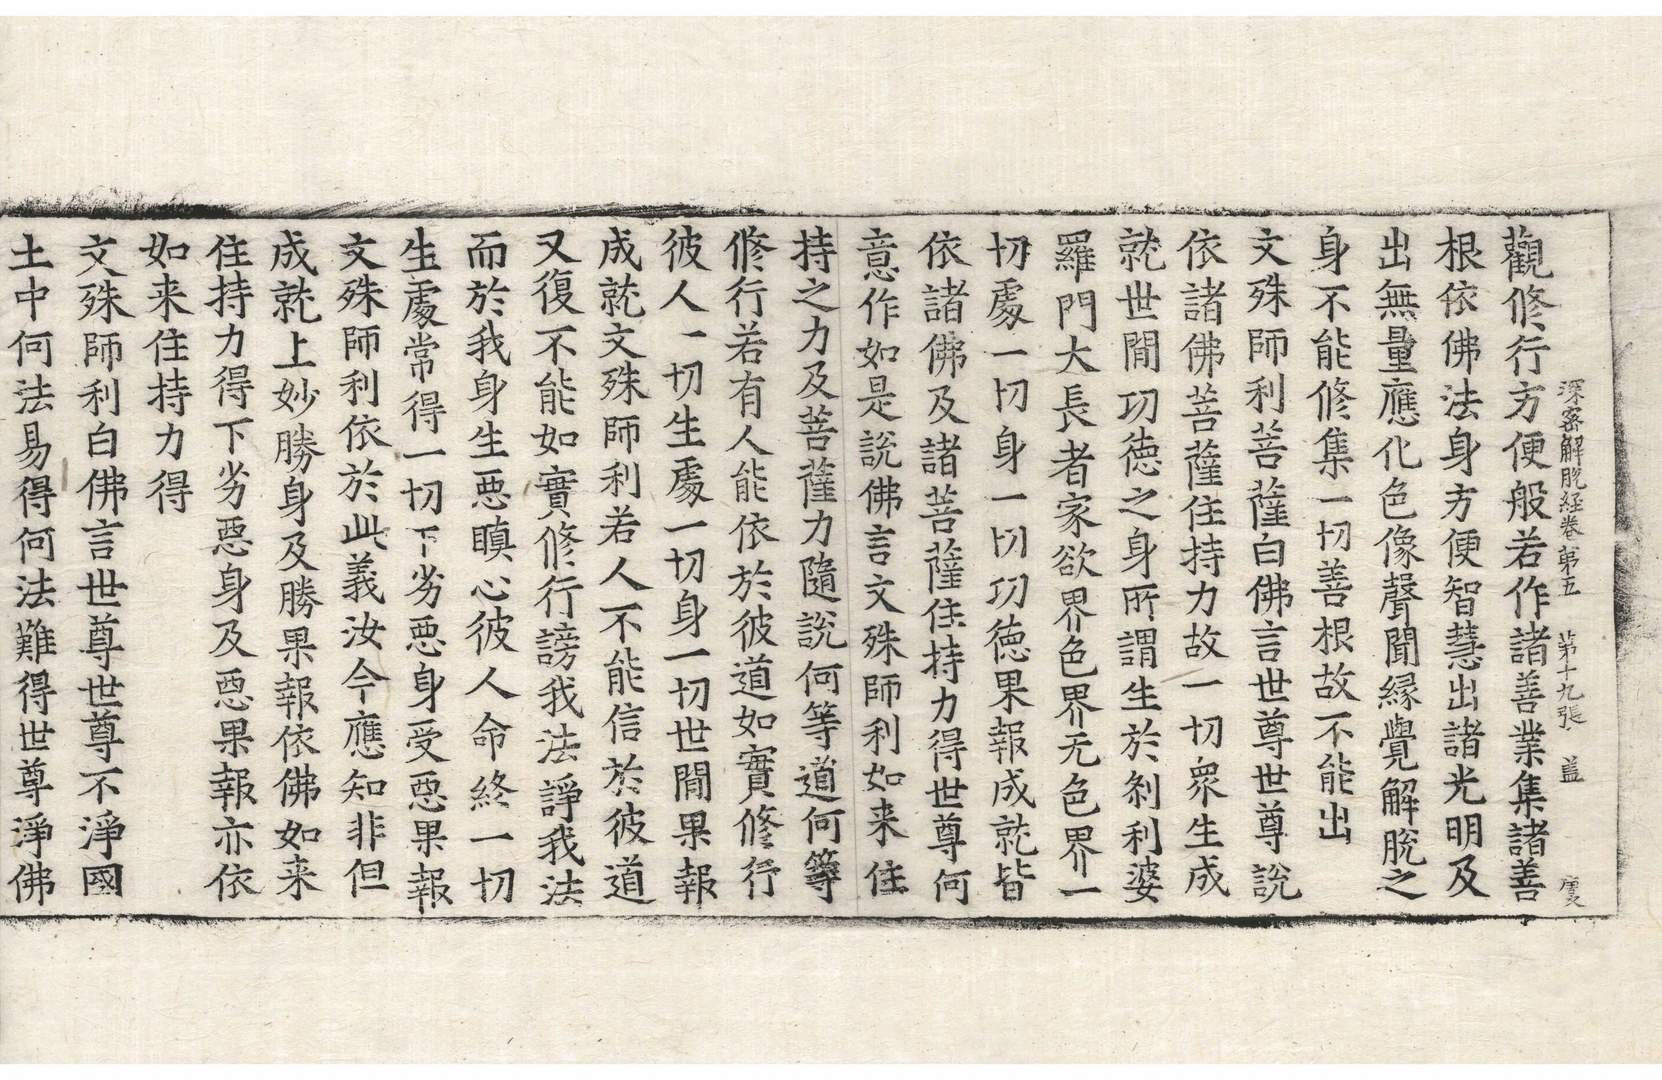 深密解脫経卷第五 第十九張 盖 㢘
觀修行方便般若作諸善業集諸善
根依佛法身方便智慧出諸光明及
出無量應化色像聲聞縁覺解脫之
身不能修集一切善根故不能出
文殊師利菩薩白佛言世尊世尊說
依諸佛菩薩住持力故一切衆生成
就世間功徳之身所謂生於刹利婆
羅門大長者家欲界色界无色界一
切處一切身一切功徳果報成就皆
依諸佛及諸菩薩住持力得世尊何
意作如是說佛言文殊師利如来住
持之力及菩薩力隨說何等道何等
修行若有人能依於彼道如實修行
彼人一切生處一切身一切世間果報
成就文殊師利若人不能信於彼道
又復不能如實修行謗我法諍我法
而於我身生惡瞋心彼人命終一切
生處常得一切下劣惡身受惡果報
文殊師利依於此義汝今應知非但
成就上妙勝身及勝果報依佛如来
住持力得下劣惡身及惡果報亦依
如来住持力得
文殊師利白佛言世尊世尊不淨國
土中何法易得何法難得世尊淨佛